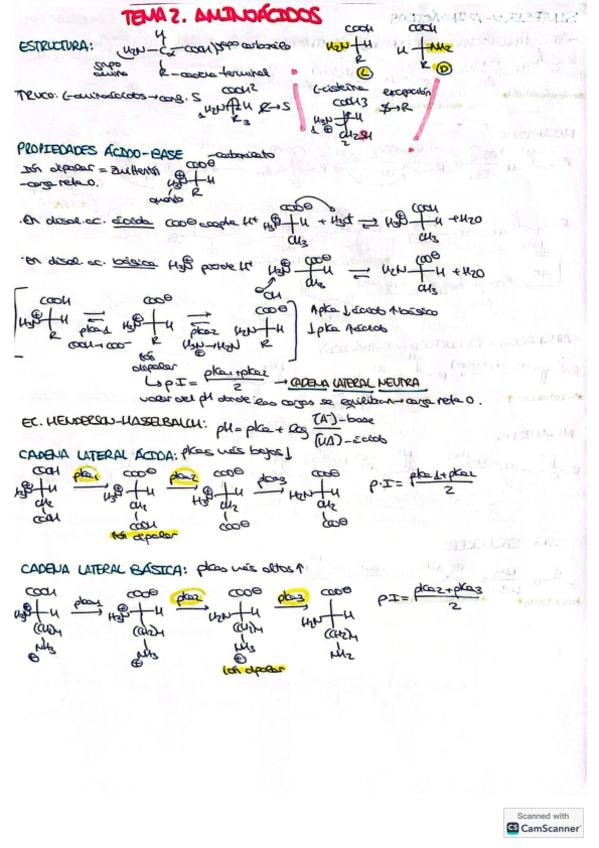 TEMA 2. AMINOÁCIDOS
ESTRUCTURA:
H
H2N-Cα-COOH grupo carboxilo
grupo amino
R-cadena lateral
COOH
H2N H
R
L
COOH
H NH2
R
D
TRUCO: L-aminoácidos→conf. S
COOH2
1 H2N H R→S
R3
L-cisteína excepción
COOH3
H3N H S→R
1 ⊕ CH2SH
2
PROPIEDADES ÁCIDO-BASE
-carboxilato
Ión dipolar = Zwitterión
-carga neta 0.
COO⊖
H3N⊕ H
R
amonio
·En disol. ac. ácida COO⊖ acepta H+
COO⊖
H3N⊕ H + H3O+ ⇌
CH3
COOH
H3N⊕ H + H2O
CH3
·En disol. ac. básica H3N⊕ pierde H+
COO⊖
H3N⊕ H ⇌
CH3
⊖OH
COO⊖
H2N H + H2O
CH3
COOH
H3N⊕ H
R
⇌
pka1
COOH→COO-
COO⊖
H3N⊕ H
R
ión dipolar
⇌
pka2
H3N→H2N
COO⊖
H2N H
R
↑pka ↓ácido ↑básico
↓pka ↑ácido
↳pI = pka1+pka2 / 2 → CADENA LATERAL NEUTRA
valor del pH donde las cargas se equilibran→carga neta 0.
EC. HENDERSON-HASSELBALCH: pH = pka + log [A-]-base / [HA]-ácido
CADENA LATERAL ÁCIDA: pkas más bajos↓
COOH
H3N⊕ H
CH2
COOH
pka1
COO⊖
H3N⊕ H
CH2
COOH
ión dipolar
pka2
COO⊖
H3N⊕ H
CH2
COO⊖
pka3
COO⊖
H2N H
CH2
COO⊖
P.I = pka1+pka2 / 2
CADENA LATERAL BÁSICA: pkas más altos↑
COOH
H3N⊕ H
(CH2)4
NH3
⊕
pka1
COO⊖
H3N⊕ H
(CH2)4
NH3
⊕
pka2
COO⊖
H2N H
(CH2)4
NH3
⊕
ión dipolar
pka3
COO⊖
H2N H
(CH2)4
NH2
PI = pka2+pka3 / 2
Scanned with
CS CamScanner